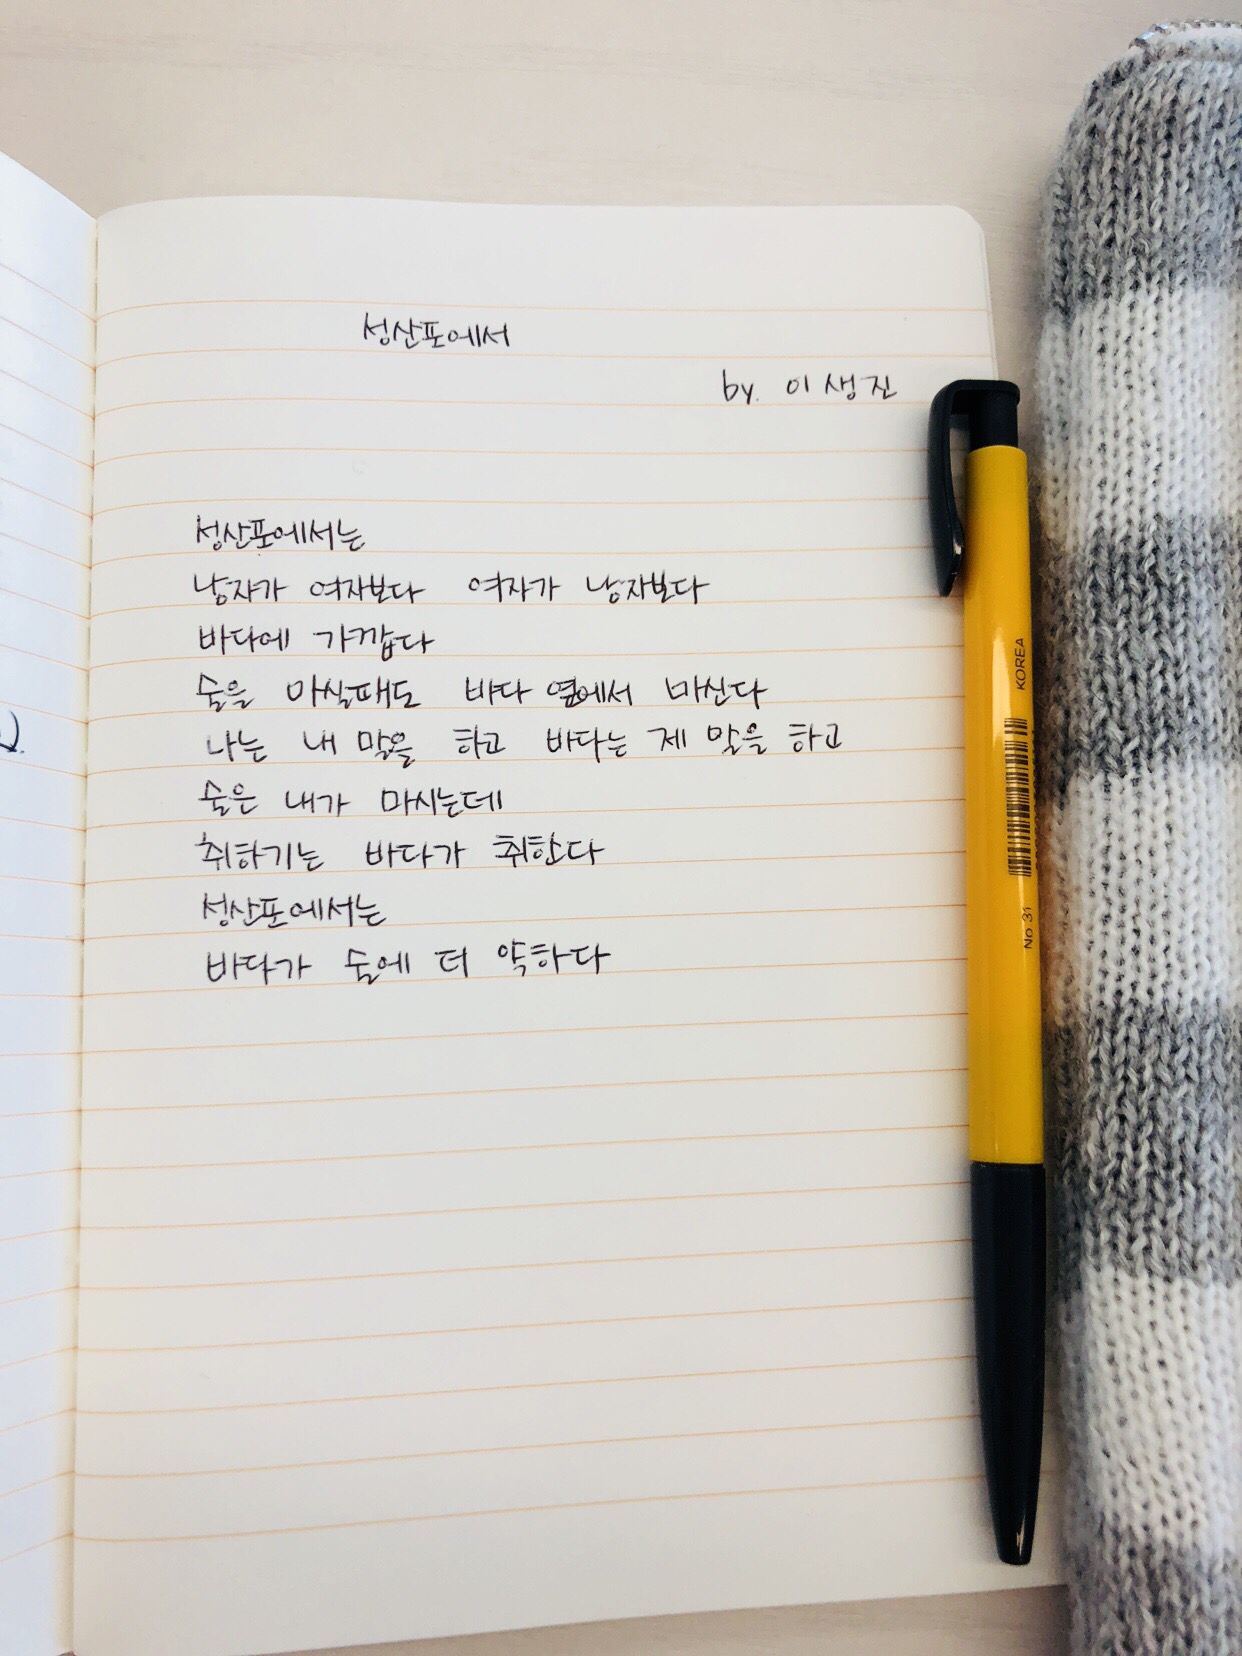 성산포에서
by. 이생진
성산포에서는
남자가 여자보다 여자가 남자보다
바다에 가깝다
술을 마실때도 바다 옆에서 마신다
나는 내 말을 하고 바다는 제 말을 하고
술은 내가 마시는데
취하기는 바다가 취한다
성산포에서는
바다가 술에 더 약하다
KOREA
No 31